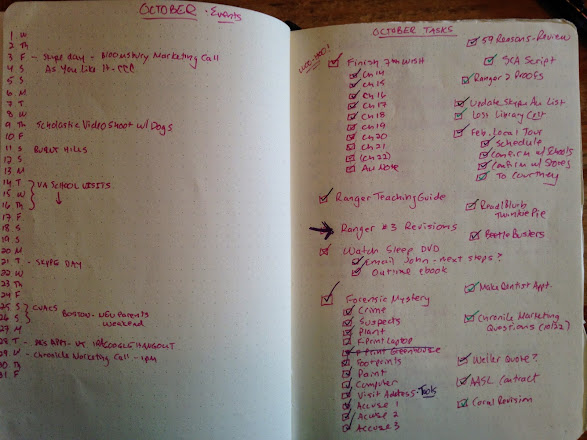 OCTOBER - Events
1 W
2 Th
3 F - Skype day - Bloomsbury Marketing Call
4 S As You Like It - CCC
5 S
6 M
7 T
8 W
9 Th Scholastic Video Shoot w/ Dogs
10 F
11 S Burnt Hills
12 S
13 M
14 T VA SCHOOL VISITS
15 W
16 Th
17 F
18 S
19 S
20 M
21 T - SKYPE DAY
22 W
23 Th
24 F
25 S
26 S BOSTON - NEU Parents
Weekend
27 M
28 T - APPT - VT GOOGLE HANGOUT
29 W - Chronicle Marketing Call - 1pm
30 Th
31 F
OCTOBER TASKS
Finish 7th Wish
Ch 14
Ch 15
Ch 16
Ch 17
Ch 18
Ch 19
Ch 20
Ch 21
(Ch 22)
Au Note
Ranger Teaching Guide
Ranger #3 Revisions
Watch Sleep DVD
Email John - next steps?
Outline ebook
Forensic Mystery
Crime
Suspects
Plant
F-Print Laptop
F-Print Greenhouse
Footprints
Paint
Computer
Visit Address - Tools
Accuse 1
Accuse 2
Accuse 3
59 Reasons - Review
SCA Script
Ranger 2 Proofs
Update Skype Au List
Loss Library Cost
Feb. Local Tour
Schedule
Confirm w/ Schools
Confirm w/ Stores
To Courtney
Read/Blurb
Twinkie Pie
Beetle Busters
Make Dentist Appt.
Chronicle Marketing
Questions (10/22)
Weller Quote?
AASL Contract
Coral Revision